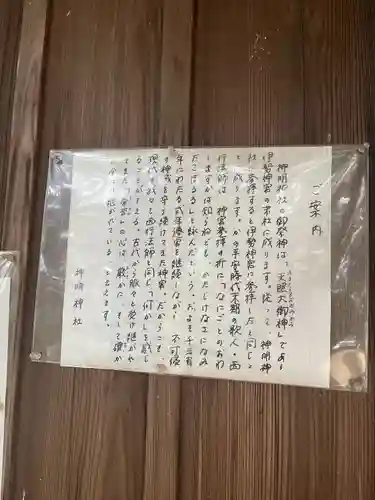 ご案内
神明神社の御祭神は、天照大御神であり
あまてらすおおみかみ
伊勢神宮の末社に成ります。従って、神明神
社に参拝すると伊勢神宮に参拝したと同じこ
とに成ります。かの平安時代末期の歌人・西
行法師は、神宮参拝の折に「なにごとのおわ
しますかは知らねども、かたじけなさになみ
だこぼるる」と詠んだという。およそ千三百
年にわたる式年遷宮を継続しながら、不可侵
の神域を守り続けてきた神宮。だからこそ、
現代の我々も西行法師と同じ「何か」を感じ
ることができる。古代から脈々と受け継がれ
てきた「斎宮」の心は、静かに、そして確か
に今に息づいている、と言えます。
神明神社